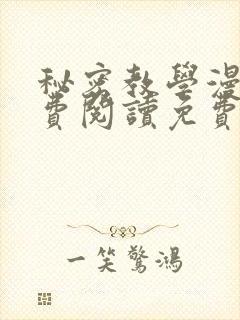 秘密教學漫
費閱讀免費
一笑驚鴻